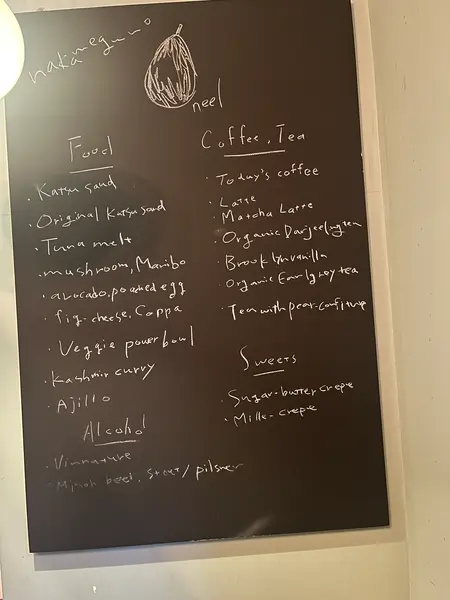 nakameguro
neel
Food
· Katsu sand
· Original Katsu sand
· Tuna melt
· mushroom, Maribo
· avocado, poached egg
· fig-cheese, Coppa
· Veggie power bowl
· Kashmir curry
· Ajillo
Alcohol
· Vinnature
· Minoh beer, Stout/pilsner
Coffee, Tea
· Today's coffee
· Latte
· Matcha Latte
· Organic Darjeeling tea
· Brooklyn vanilla
· Organic Earlgrey tea
· Tea with pear-confiture
Sweets
· Sugar-butter crepe
· Mille-crepe